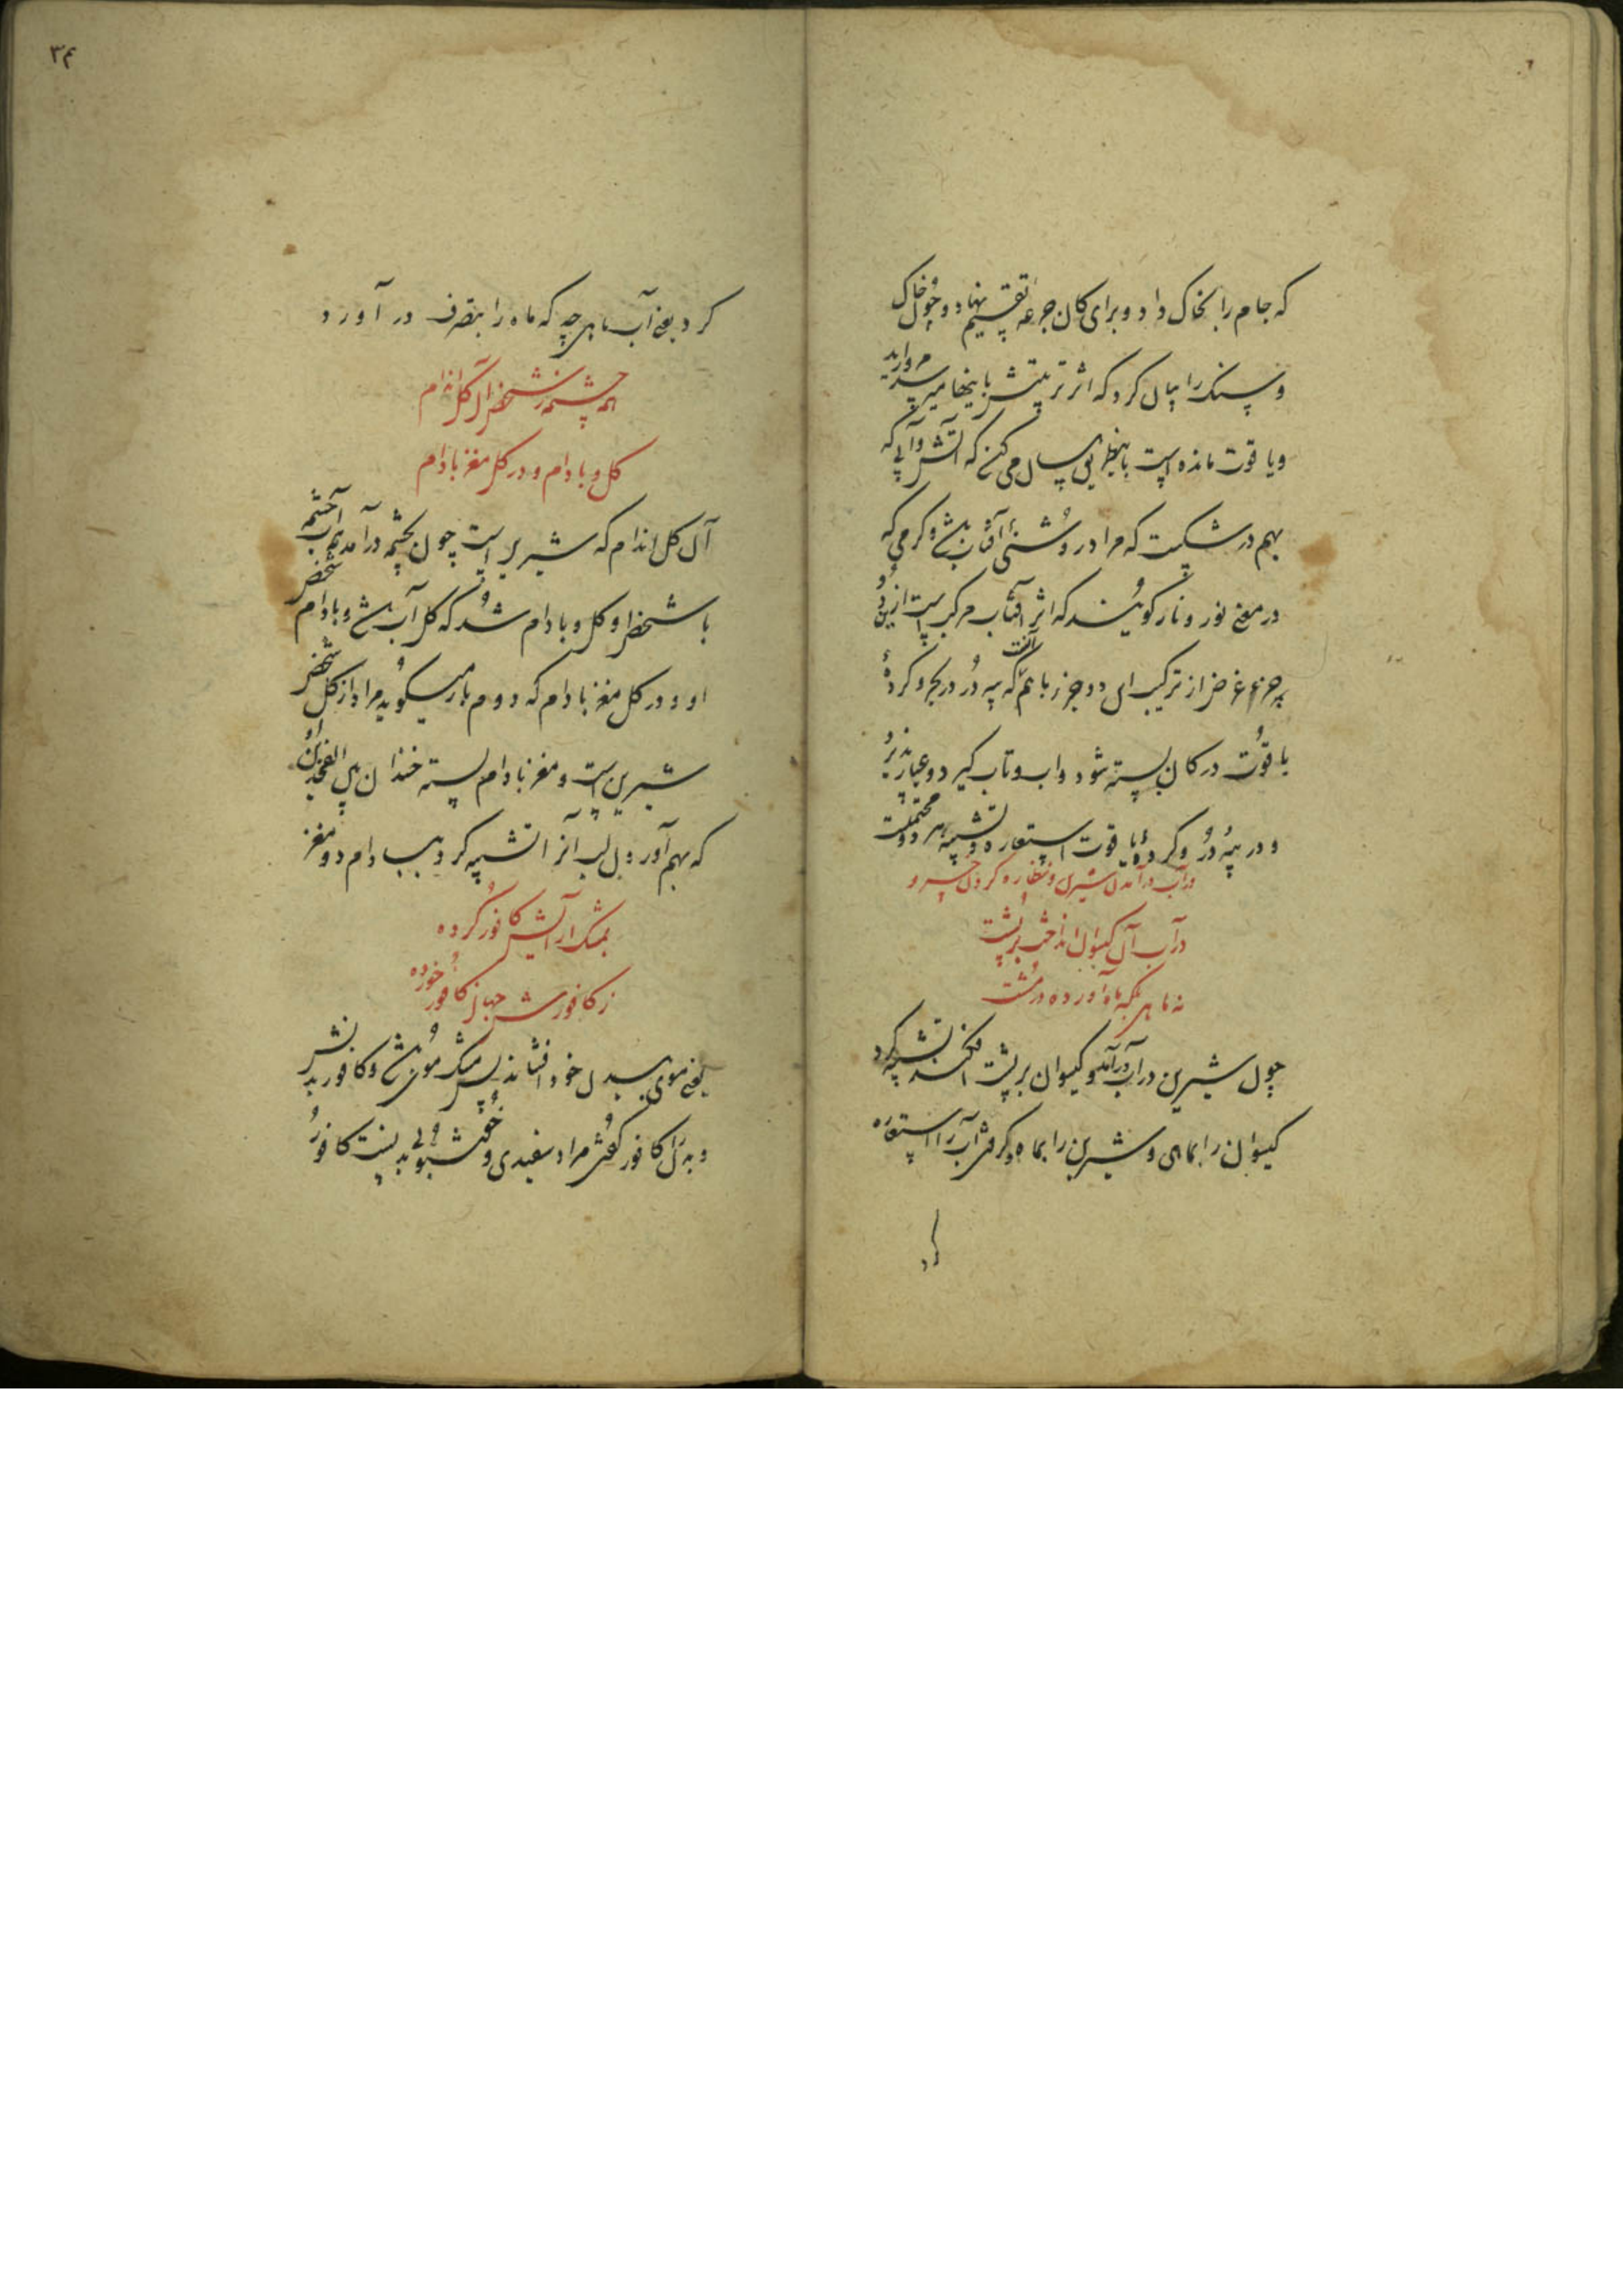 که جام را بخاک داد و برای کان جرعه تقسیم نهاد و چون خاک
و سنگ را بیان کرد که اثر تربیتش باینها میرسد مروارید
و یاقوت مانده است باینطریق بیان می کند که آتش و آبی که
بهم در شکست که مراد روشنی آفتاب باشد و کرمی که
در معنی نور و نار کویند که اثر آفتاب مرکب است ازین دو
جزء غرض از ترکیب این دو جزء باهم آنست که پیه دُر در بحر و کردهٔ
یاقوت در کان بسته شود و آب و تاب کیرد و عیار پذیرد
و در پیهٔ دُر و کردهٔ یاقوت استعاره و تشبیه هر دو محتملست
در آب درآمدن شیرین و نظاره کردن خسرو
در آب آن کیسوان انداخت بر پشت
نه ماهی بلکه ماه آورده در مشت
چون شیرین در آب درآمد و کیسوان بر پشت افکند تشبیه کرد
کیسوان را بماهی و شیرین را بماه و کرفتن آب را استعاره
کرد یعنی آب ماهی چه که ماه را بتصرف در آورد
همه چشمه ز شخص آن کل اندام
کل و بادام و در کل مغز بادام
آن کل اندام که شیرین است چون بچشمه درآمد آب چشمه
با شخص او کل و بادام شد که کل آب باشد و بادام شخص
او و در کل مغز بادام که دوم بار میکوید مراد از کل شخص
شیرین است و مغز بادام پسته خندان
که بهم آورد و لب آنرا تشبیه کرد به بادام دو مغز
بمشک آرایش کافور کرده
ز کافورش جهان کافور خورده
یعنی موی بر بدن خود افشاند پس مشک مویش و کافور بدنش
و بدن را کافور کفتن مراد سفیدی و خوشبویی بدنست کافور